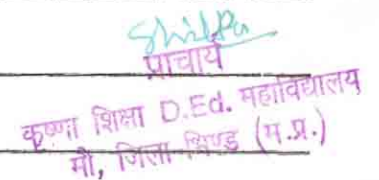 Shilpa
प्राचार्य
कृष्णा शिक्षा D.Ed. महाविद्यालय
मौ, जिला भिण्ड (म.प्र.)